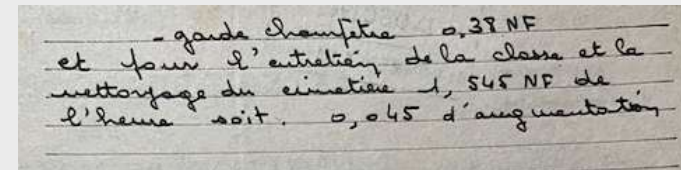 - garde champêtre 0,38 NF
et pour l'entretien de la classe et la
nettoyage du cimetière 1,545 NF de
l'heure soit. 0,045 d'augmentation